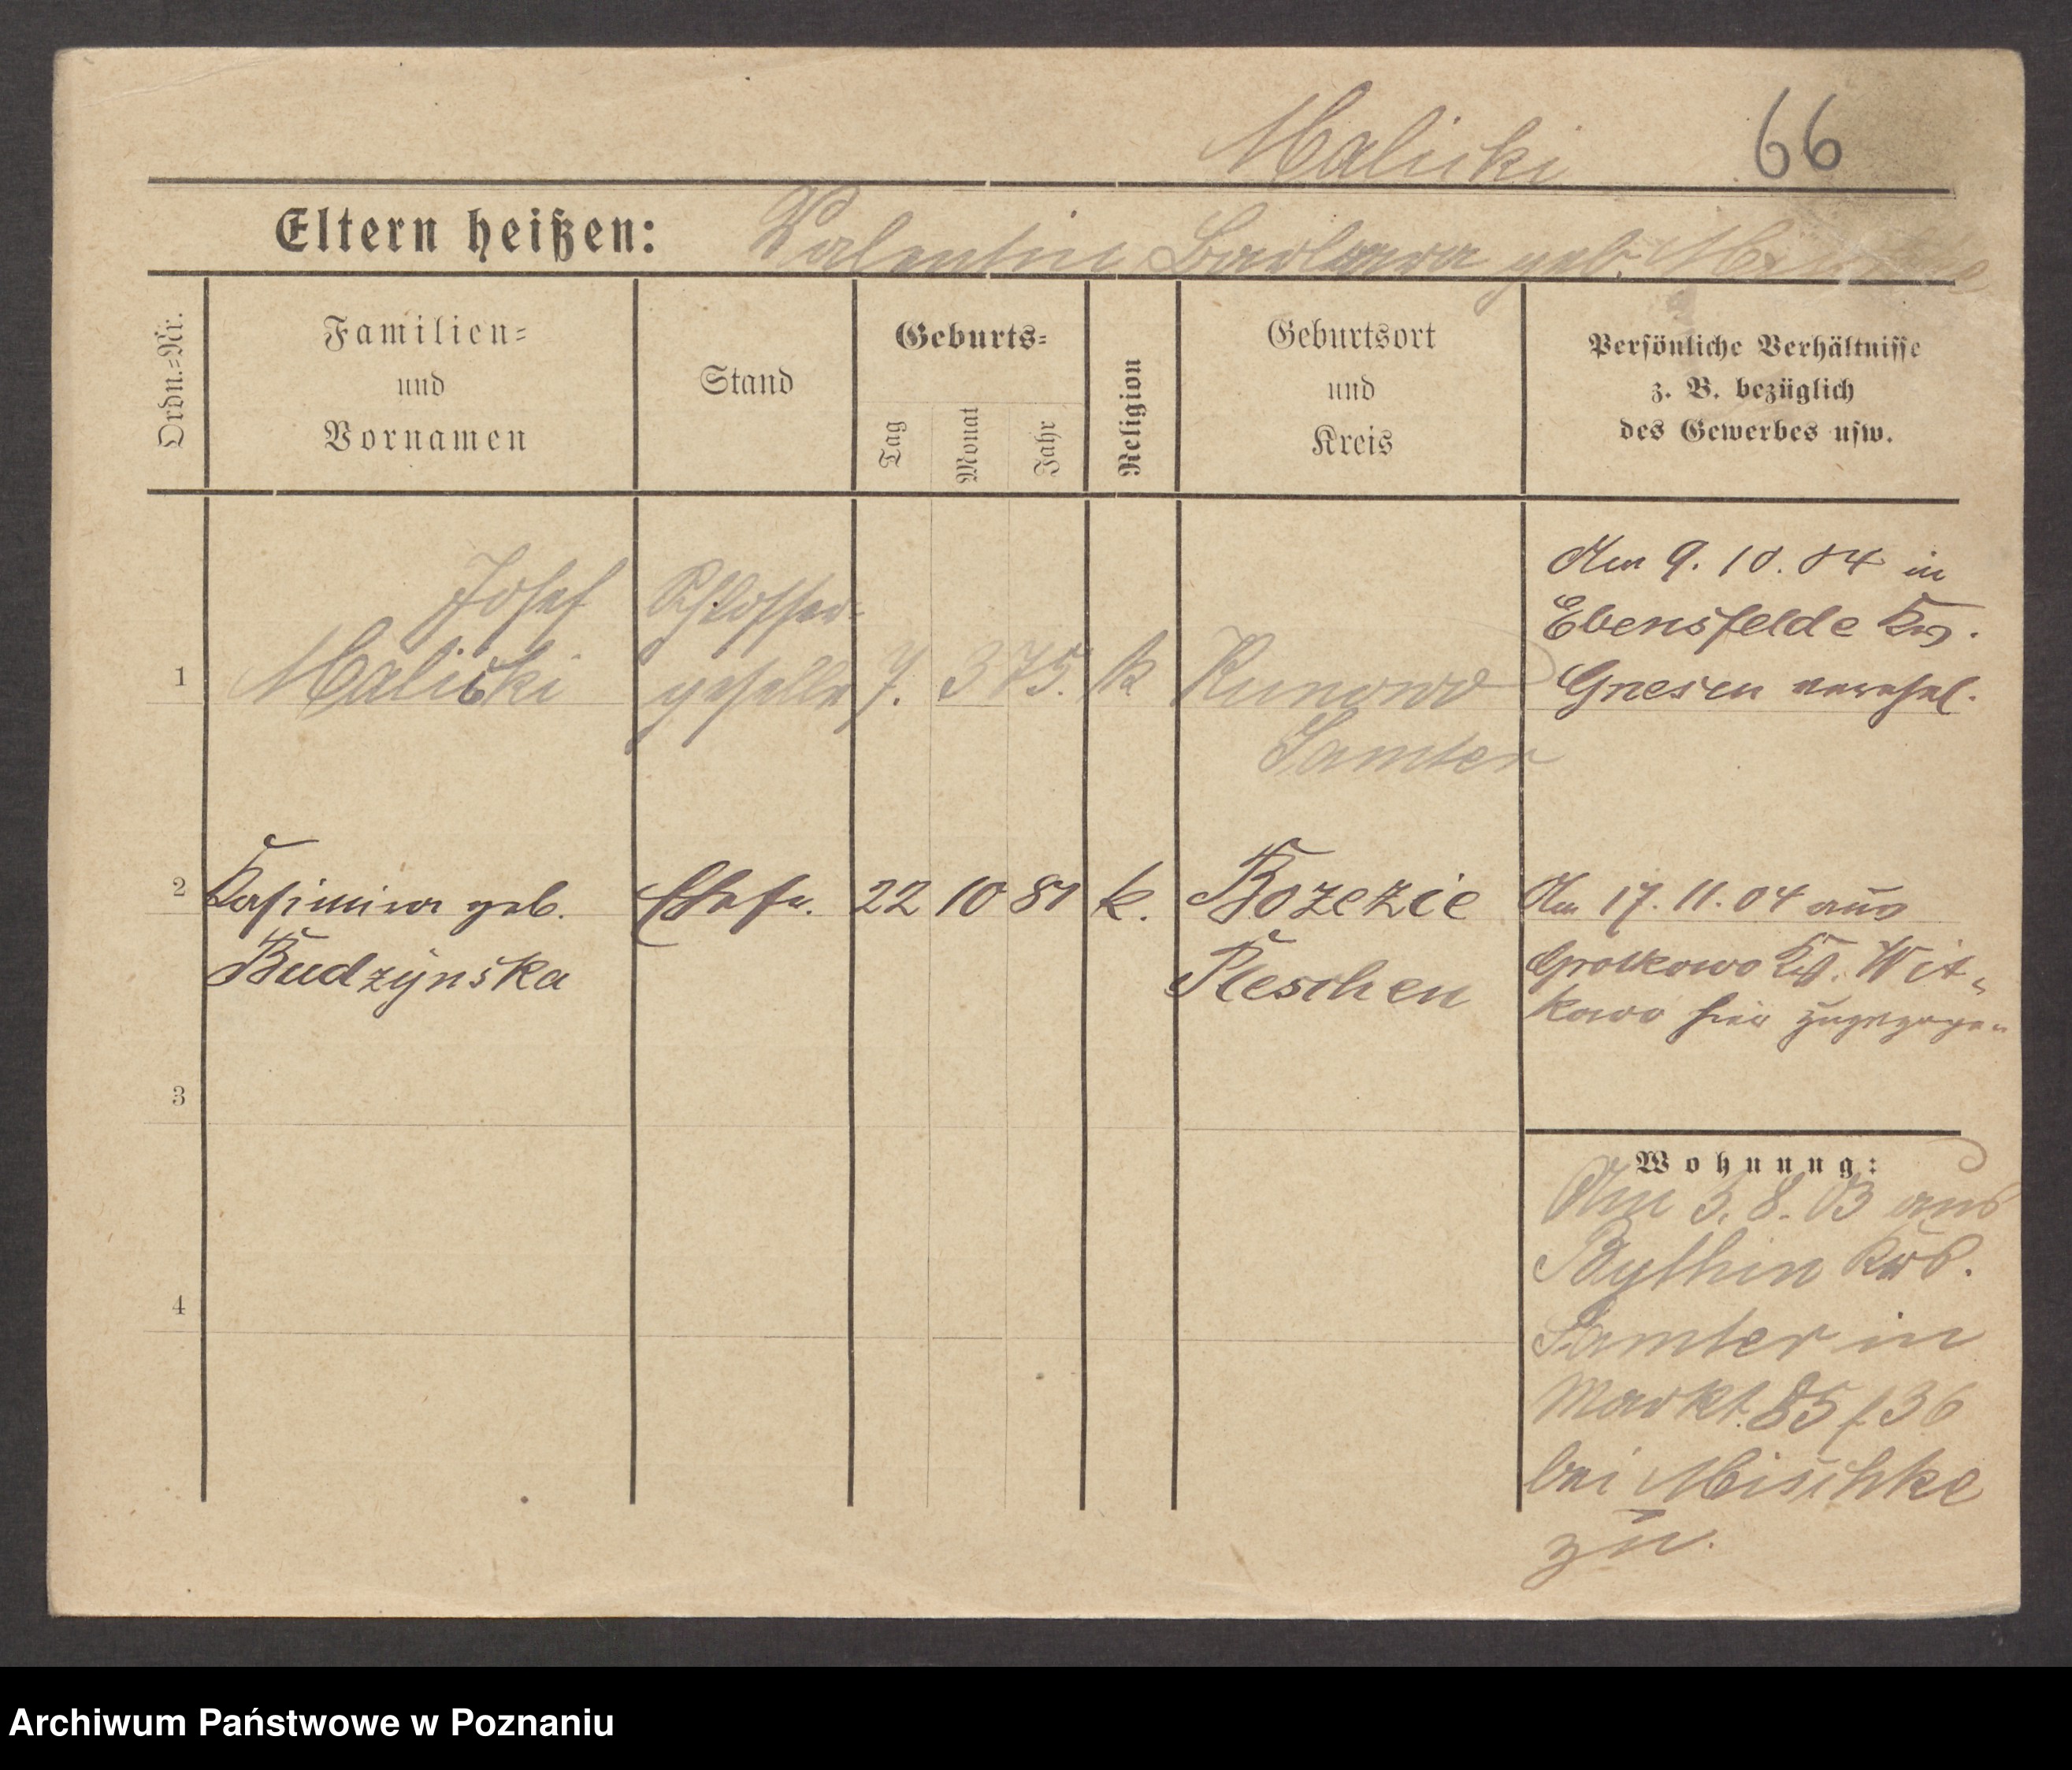 Malicki 66
Eltern heißen: Valentin Barbara geb.
Ordn.-Nr.
Familien-
und
Vornamen
Stand
Geburts-
Tag
Monat
Jahr
Religion
Geburtsort
und
Kreis
Persönliche Verhältnisse
z. B. bezüglich
des Gewerbes usw.
1
Josef
Malicki
Schlosser-
geselle
7. 3 75.
k
Kunowo
Samter
Am 9. 10. 04 in
Ebensfelde Krs.
Gnesen verehel.
2
Kasimira geb.
Budzynska
Ehefr.
22 10 81
k.
Bozezie
Pleschen
Am 17. 11. 04 aus
Grotkowo Krs. Wit-
kowo hier zugezogen
3
4
Wohnung:
Am 3. 8. 03 aus
Bythin Krs.
Samter in
Markt 85/36
bei Mischke
zu.
Archiwum Państwowe w Poznaniu